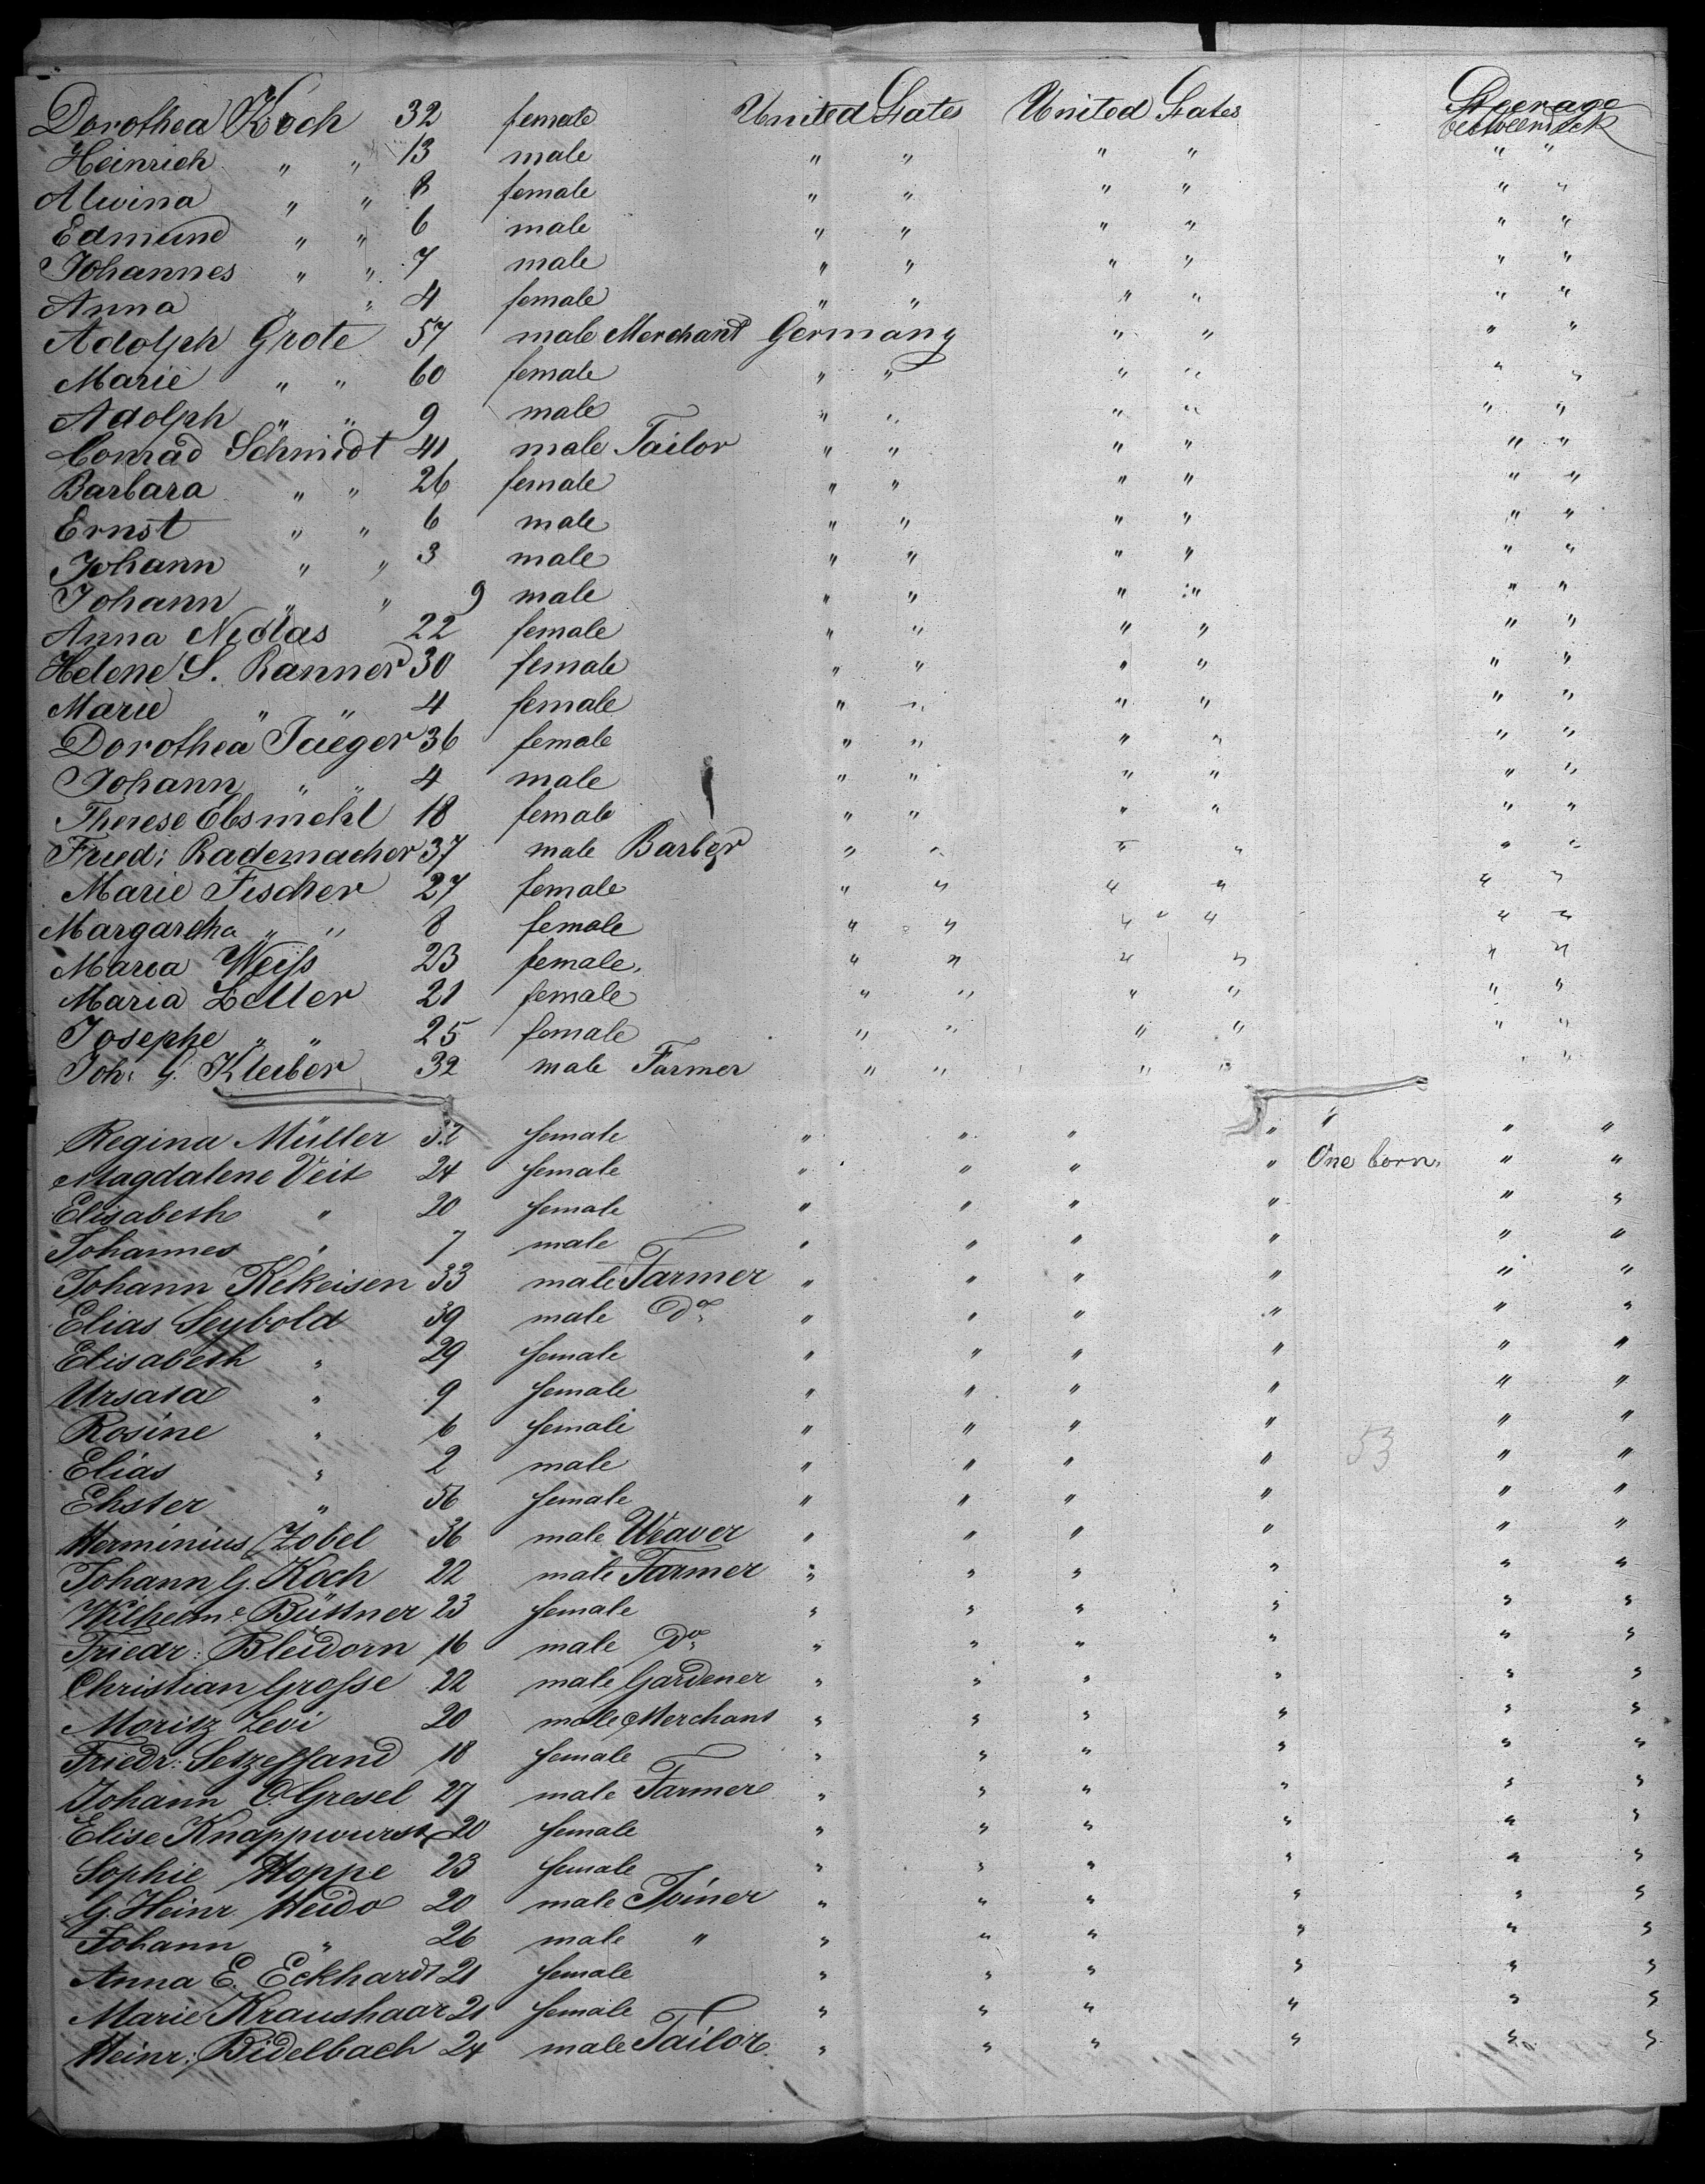 Dorothea Koch 32 female United States United States Steerage betweendeck
Heinrich " " 13 male " " " " " "
Alwina " " 8 female " " " " " "
Edmund " " 6 male " " " " " "
Johannes " " 7 male " " " " " "
Anna " " 4 female " " " " " "
Adolph Grote 57 male Merchant Germany " " " "
Marie " " 60 female " " " " " "
Adolph " " 9 male " " " " " "
Conrad Schmidt 41 male Tailor " " " " " "
Barbara " " 26 female " " " " " "
Ernst " " 6 male " " " " " "
Johann " " 3 male " " " " " "
Johann " " 9 male " " " " " "
Anna 22 female " " " " " "
Helene S. Ranner 30 female " " " " " "
Marie " " 4 female " " " " " "
Dorothea Jaeger 36 female " " " " " "
Johann " " 4 male " " " " " "
Therese Ebsmehl 18 female " " " " " "
Fried: Rademacher 37 male Barber " " " " " "
Marie Fischer 27 female " " " " " "
Margaretha " " 8 female " " " " " "
Maria Weiss 23 female " " " " " "
Maria Zeller 21 female " " " " " "
Josephe " " 25 female " " " " " "
Joh: G. Kleiber 32 male Farmer " " " " " "
Regina Müller 32 female " " " " " " "
Magdalene Veit 24 female " " " " One born. " "
Elisabeth " 20 female " " " " " "
Johannes " 7 male " " " " " "
Johann Kekeisen 33 male Farmer " " " " " "
Elias Seybold 39 male Do " " " " " "
Elisabeth " 29 female " " " " " "
Ursala " 9 female " " " " " "
Rosine " 6 female " " " " " "
Elias " 2 male " " " " 53 " "
Ehster " 56 female " " " " " "
Herminius Zobel 36 male Weaver " " " " " "
Johann G. Koch 22 male Farmer " " " " " "
Wilhelme Büttner 23 female " " " " " "
Friedr: Bleidorn 16 male Do " " " " " "
Christian Grosse 22 male Gardener " " " " " "
Moritz Levi 20 male Merchant " " " " " "
Friedr: 18 female " " " " " "
Johann Gresel 27 male Farmer " " " " " "
Elise Knappwurst 20 female " " " " " "
Sophie Hoppe 23 female " " " " " "
G. Heinr Heido 20 male Joiner " " " " " "
Johann " 26 male " " " " " " "
Anna E. Eckhardt 21 female " " " " " "
Marie Kraushaar 21 female " " " " " "
Heinr: Bidelbach 24 male Tailor " " " " " "